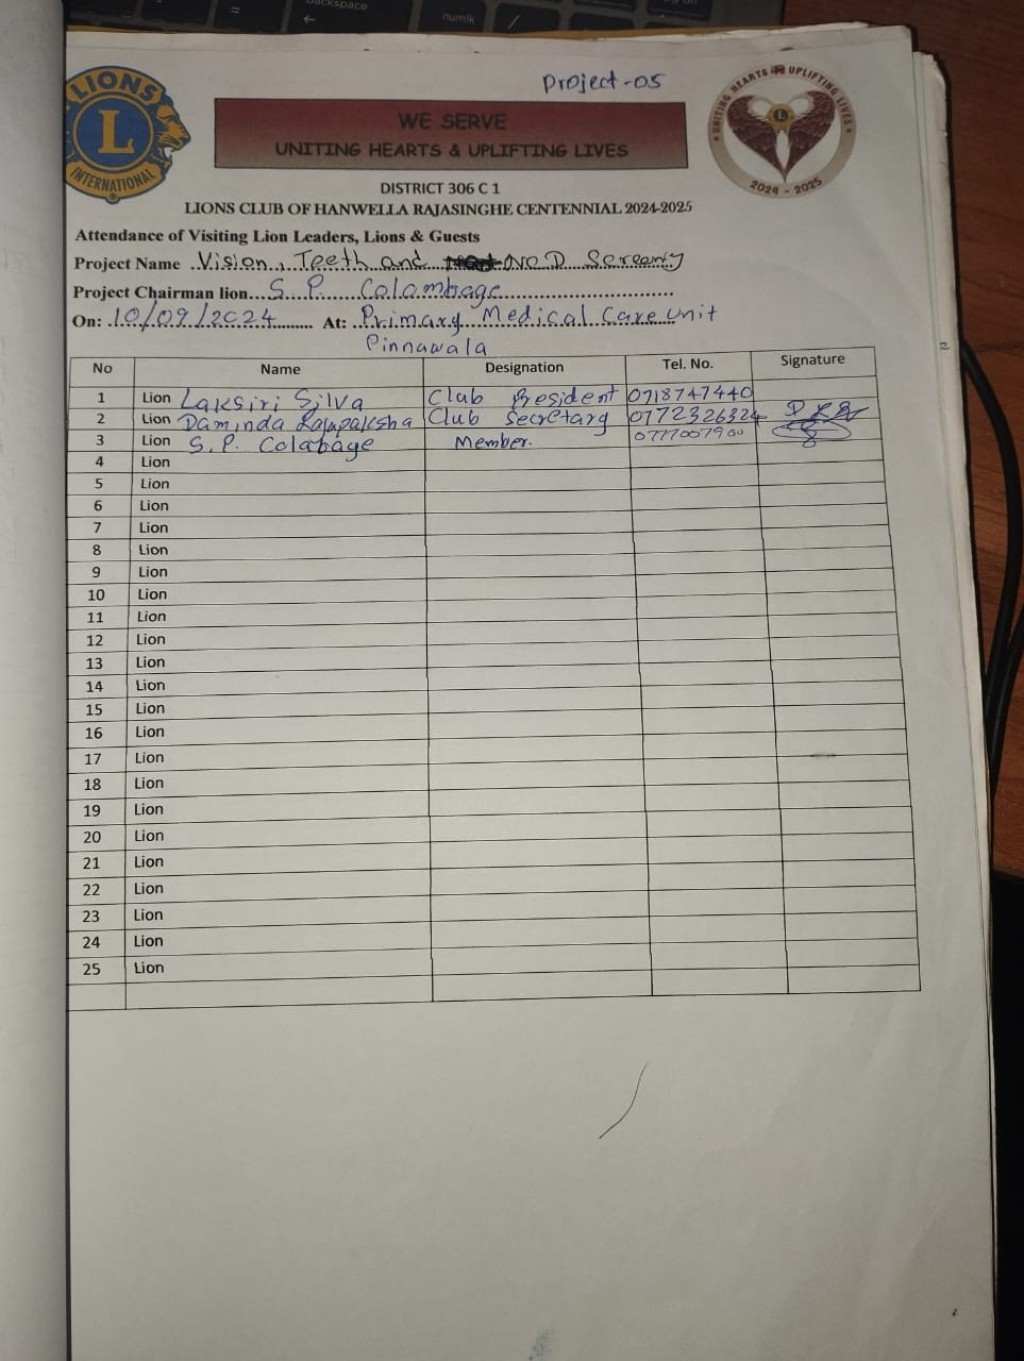 backspace
numlk
LIONS
L
INTERNATIONAL
Project-05
WE SERVE
UNITING HEARTS & UPLIFTING LIVES
UNITING HEARTS UPLIFTING LIVES
2024 - 2025
DISTRICT 306 C 1
LIONS CLUB OF HANWELLA RAJASINGHE CENTENNIAL 2024-2025
Attendance of Visiting Lion Leaders, Lions & Guests
Project Name Vision, Teeth and
Project Chairman lion S. P. Colombage
On: 10/09/2024 At: Primary Medical Care Unit
Pinnawala
No Name Designation Tel. No. Signature
1 Lion Laksiri Silva Club President 0718747440
2 Lion Daminda Rajapaksha Club Secretary 0772326324
3 Lion S. P. Colabage Member.
4 Lion
5 Lion
6 Lion
7 Lion
8 Lion
9 Lion
10 Lion
11 Lion
12 Lion
13 Lion
14 Lion
15 Lion
16 Lion
17 Lion
18 Lion
19 Lion
20 Lion
21 Lion
22 Lion
23 Lion
24 Lion
25 Lion